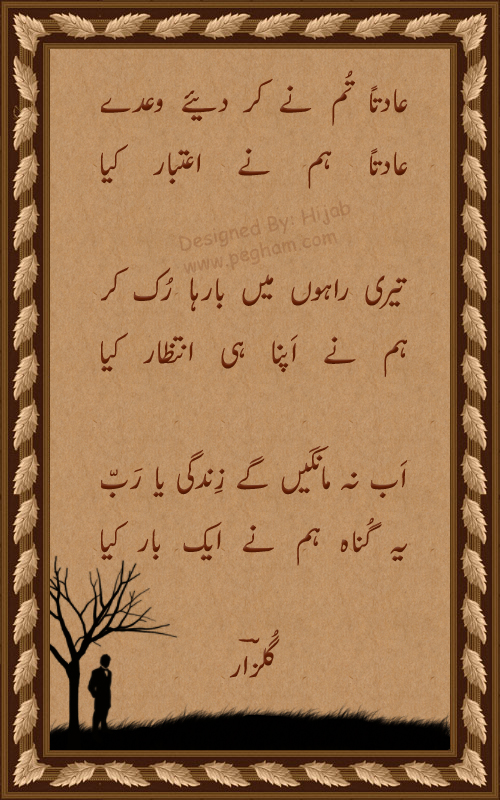 عادتاً تُم نے کر دیئے وعدے
عادتاً ہم نے اعتبار کیا
Designed By: Hijab
www.pegham.com
تیری راہوں میں بارہا رُک کر
ہم نے اَپنا ہی انتظار کیا
اَب نہ مانگیں گے زِندگی یا رَبّ
یہ گُناہ ہم نے ایک بار کیا
گُلزار